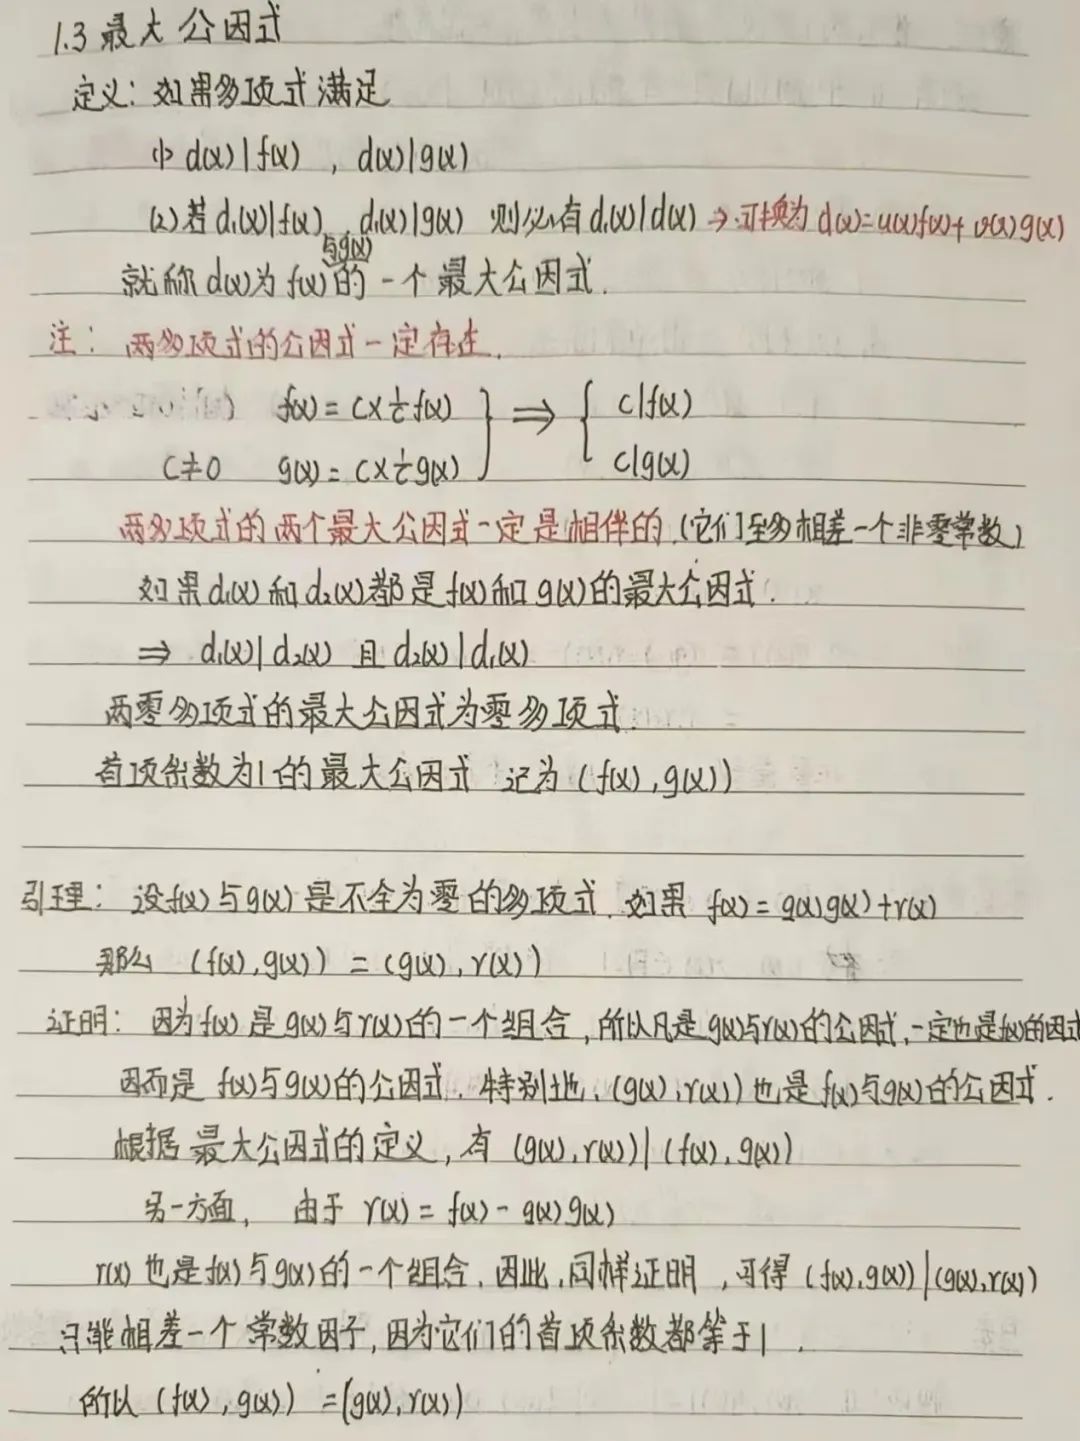 1.3 最大公因式
定义：如果多项式满足
(1) d(x)|f(x) , d(x)|g(x)
(2)若d₁(x)|f(x) , d₁(x)|g(x) 则必有d₁(x)|d(x) → 可换为 d(x)=u(x)f(x)+v(x)g(x)
与g(x)
就称d(x)为f(x)的一个最大公因式.
注：两多项式的公因式一定存在.
f(x)=c×1/c f(x) } ⇒ { c|f(x)
c≠0 g(x)=c×1/c g(x) c|g(x)
两多项式的两个最大公因式一定是相伴的.(它们至多相差一个非零常数)
如果d₁(x)和d₂(x)都是f(x)和g(x)的最大公因式.
⇒ d₁(x)|d₂(x) 且 d₂(x)|d₁(x)
两零多项式的最大公因式为零多项式.
首项系数为1的最大公因式 记为(f(x),g(x))
引理：设f(x)与g(x)是不全为零的多项式.如果 f(x)=q(x)g(x)+r(x)
那么 (f(x),g(x))=(g(x),r(x))
证明：因为f(x)是g(x)与r(x)的一个组合,所以凡是g(x)与r(x)的公因式,一定也是f(x)的因式
因而是f(x)与g(x)的公因式.特别地,(g(x),r(x))也是f(x)与g(x)的公因式.
根据最大公因式的定义,有(g(x),r(x))|(f(x),g(x))
另一方面, 由于 r(x)=f(x)-q(x)g(x)
r(x)也是f(x)与g(x)的一个组合,因此,同样证明,可得(f(x),g(x))|(g(x),r(x))
只能相差一个常数因子,因为它们的首项系数都等于1.
所以(f(x),g(x))=(g(x),r(x))